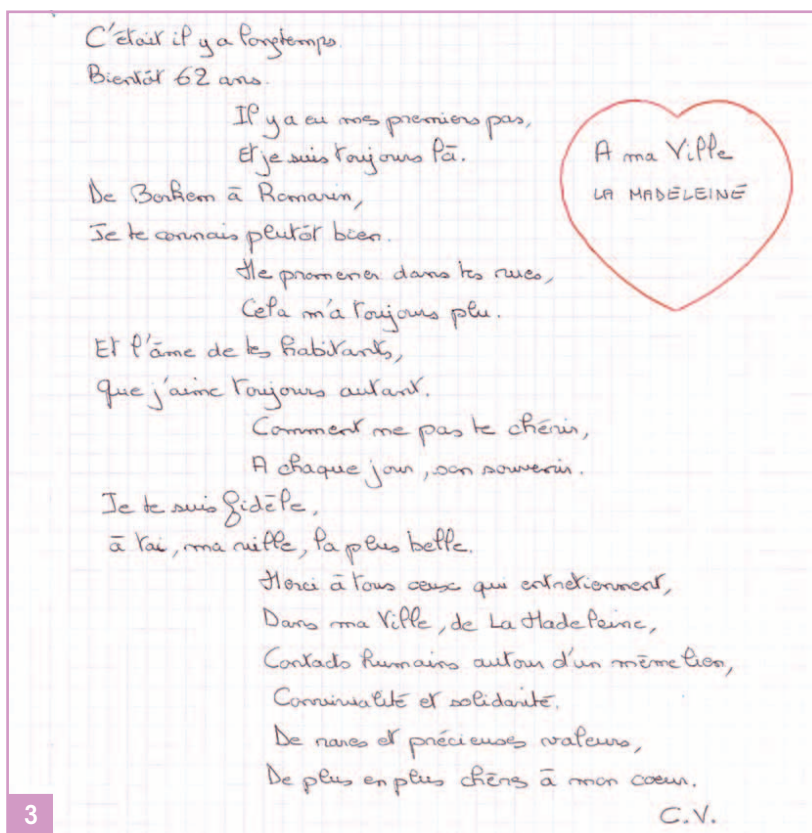 C'était il y a longtemps.
Bientôt 62 ans.
Il y a eu mes premiers pas,
Et je suis toujours là.
A ma Ville
LA MADELEINE
De Berkem à Romarin,
Je te connais plutôt bien.
Me promener dans tes rues,
Cela m'a toujours plu.
Et l'âme de tes habitants,
que j'aime toujours autant.
Comment ne pas te chérir,
A chaque jour, son souvenir.
Je te suis fidèle,
à toi, ma ville, la plus belle.
Merci à tous ceux qui entretiennent,
Dans ma Ville, de La Madeleine,
Contacts humains autour d'un même lien,
Convivialité et solidarité.
De rares et précieuses valeurs,
De plus en plus chères à mon coeur.
C.V.
3